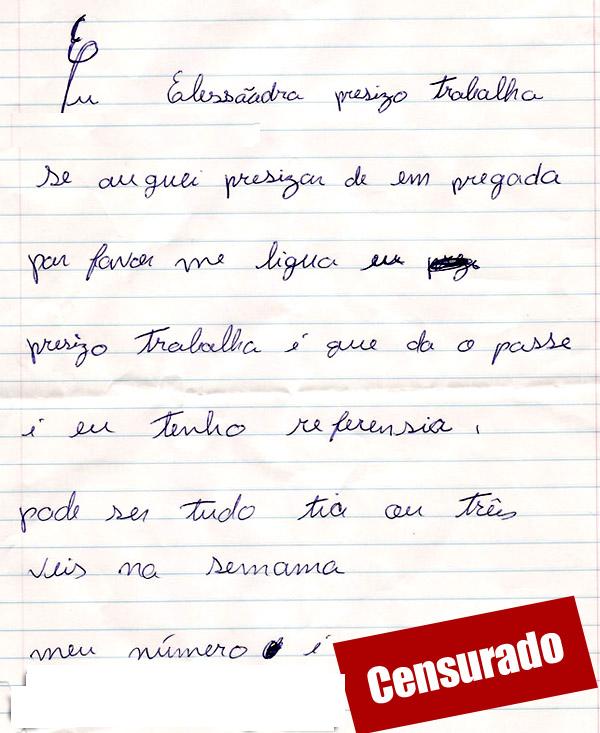 Eu Elessãadra presizo trabalha
se auguei presizar de em pregada
por favor me ligua eu
presizo trabalha i que da o passe
i eu tenho referensia,
pode ser tudo tia ou três
veis na semama
meu número é
Censurado